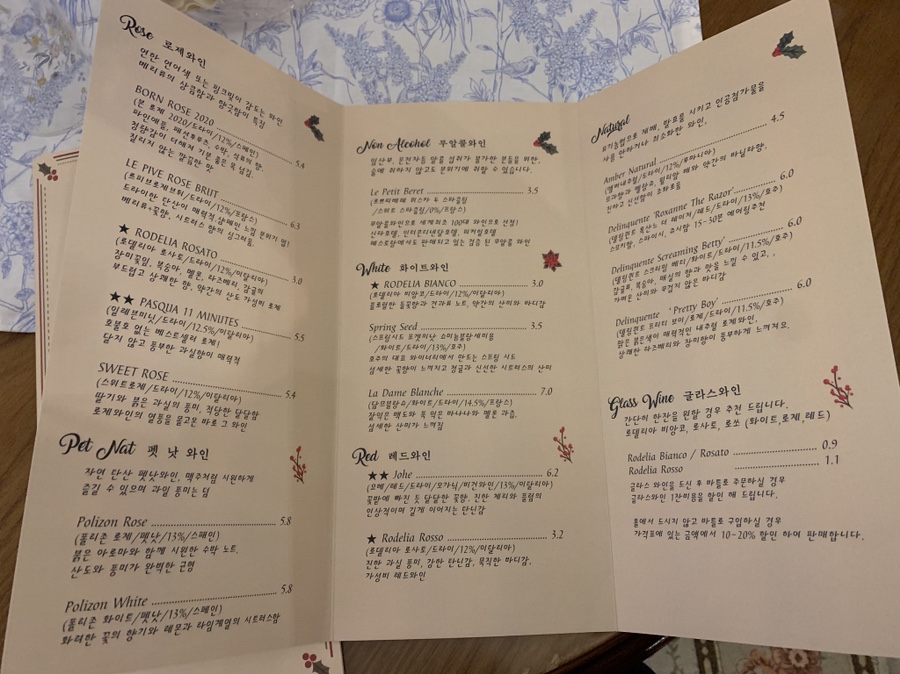 Rose 로제와인
연한 연어색 또는 핑크빛이 감도는 와인
베리류의 상큼함과 향긋함이 특징
BORN ROSE 2020 5.4
(본 로제 2020/드라이/12%/스페인)
파인애플, 패션후르츠, 수박, 석류의 향.
청량감이 더해져 기분 좋은 목넘김
질리지 않는 깔끔한 맛
LE PIVE ROSE BRUT 6.3
드라이한 탄산이 매력적,샴페인 느낌 분위기 업!
베리류+꽃향, 시트러스 향의 싱그러움.
★ RODELIA ROSATO 3.0
(로델리아 로사토/드라이/12%/이탈리아)
장미꽃잎, 복숭아, 멜론, 라즈베리, 감귤의
부드럽고 상쾌한 향, 약간의 산도 가성비 로제
★★ PASQUA 11 MINUTES 5.5
(일레븐미닛/드라이/12.5%/이탈리아)
호불호 없는 베스트셀러 로제!
달지 않고 풍부한 과실향이 매력적
SWEET ROSE 5.4
(스위트로제/드라이/12%/이탈리아)
딸기와 붉은 과실의 풍미, 적당한 달달함
로제와인의 열풍을 몰고온 바로 그 와인
Pet Nat 펫 낫 와인
자연 탄산 펫낫와인, 맥주처럼 시원하게
즐길 수 있으며 과일 풍미는 덤
Polizon Rose 5.8
(폴리존 로제/펫낫/13%/스페인)
붉은 아로마와 함께 시원한 수박 노트.
산도와 풍미가 완벽한 균형
Polizon White 5.8
(폴리존 화이트/펫낫/13%/스페인)
화려한 꽃의 향기와 레몬과 라임계열의 시트러스함
Non Alcohol 무알콜와인
임산부, 운전자등 알콜 섭취가 불가한 분들을 위한,
술에 취하지 않고도 분위기에 취할 수 있습니다.
Le Petit Beret 3.5
/스위트 스타클링/0%/프랑스)
무알콜와인으로 세계최초 100대 와인으로 선정!
신라호텔, 인터콘티넨탈호텔, 워커힐호텔
베스토랑에서도 판매되고 있는 검증 된 무알콜 와인
White 화이트와인
★ RODELIA BIANCO 3.0
(로델리아 비앙코/드라이/12%/이탈리아)
플로럴한 들꽃향과 견과류 노트, 약간의 산미와 바디감
Spring Seed 3.5
/화이트/드라이/13%/호주)
호주의 대표 와이너리에서 만드는 스프링 시드
섬세한 꽃향이 느껴지고 청귤과 신선한 시트러스의 산미
La Dame Blanche 7.0
(담므블랑슈/화이트/드라이/14.5%/프랑스)
잘익은 맥도 톡 익은 바나나와 멜론 과즙,
섬세한 산미가 느껴짐
Red 레드와인
★★ Johe 6.2
(요헤/레드/드라이/오가닉/비건와인/13%/이탈리아)
꽃밭에 빠진 듯 달달한 꽃향. 진한 체리와 플럼의
인상적이며 길게 이어지는 탄닌감
★ Rodelia Rosso 3.2
(로델리아 로사토/드라이/12%/이탈리아)
진한 과실 풍미, 강한 탄닌감, 묵직한 바디감.
가성비 레드와인
Natural
유기농법으로 재배, 발효를 시키고 인공첨가물을
사용 안하거나 최소화한 와인.
Amber Natural 4.5
(엠버내추럴/드라이/12%/루마니아)
진하고 신선함이 조화로움
Delinquente 'Roxanne The Razor' 6.0
스모키향, 스파이시, 주시함 15-30분 에어링추천
Delinquente Screaming Betty' 6.0
(델링퀀트 스크리밍 베티/화이트/드라이/11.5%/호주)
감귤류, 복숭아, 매실의 향과 맛을 느낄 수 있고, ,
가벼운 산미와 무겁지 않은 바디감
Delinquente 'Pretty Boy' 6.0
(델링퀀트 프리티 보이/로제/드라이/11.5%/호주)
맑은 붉은색이 매력적인 내추럴 로제와인,
상쾌한 라즈베리와 장미향이 풍부하게 느껴져요.
Glass Wine 글라스와인
간단히 한잔을 원할 경우 추천 드립니다.
로델리아 비앙코, 로사토, 로쏘 (화이트,로제,레드)
Rodelia Bianco / Rosato 0.9
Rodelia Rosso 1.1
글라스 와인을 드신 후 바틀로 주문하실 경우
글라스와인 1잔비용을 할인 해 드립니다.
홀에서 드시지 않고 바틀로 구입하실 경우
가격표에 있는 금액에서 10-20% 할인 하여 판매합니다.